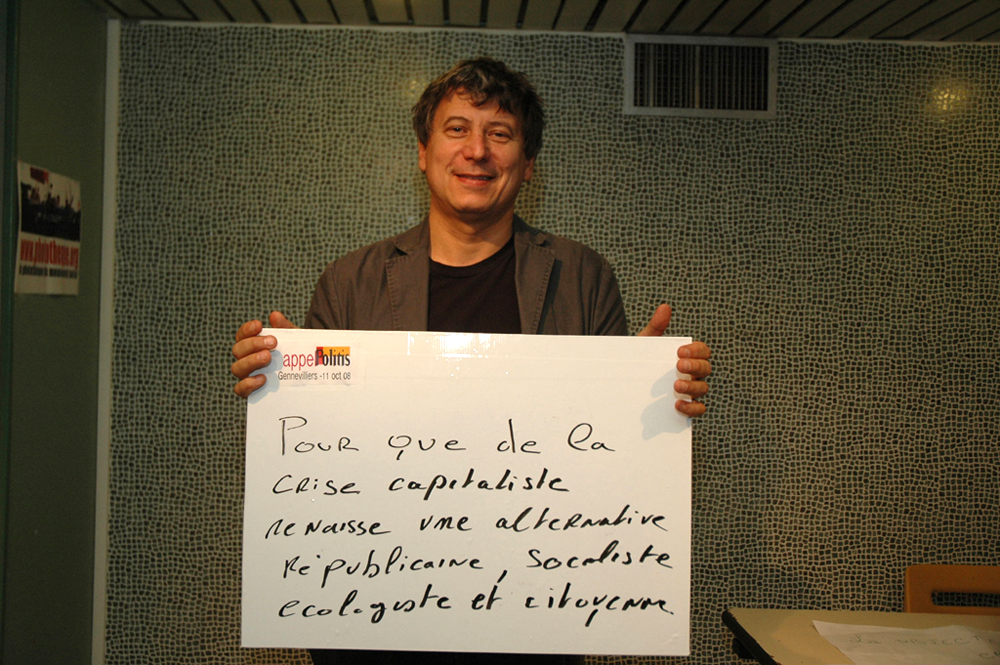 appel Politis
Gennevilliers - 11 oct 08
Pour que de la
crise capitaliste
renaisse une alternative
républicaine, socialiste
ecologiste et citoyenne
www.phototheque.org